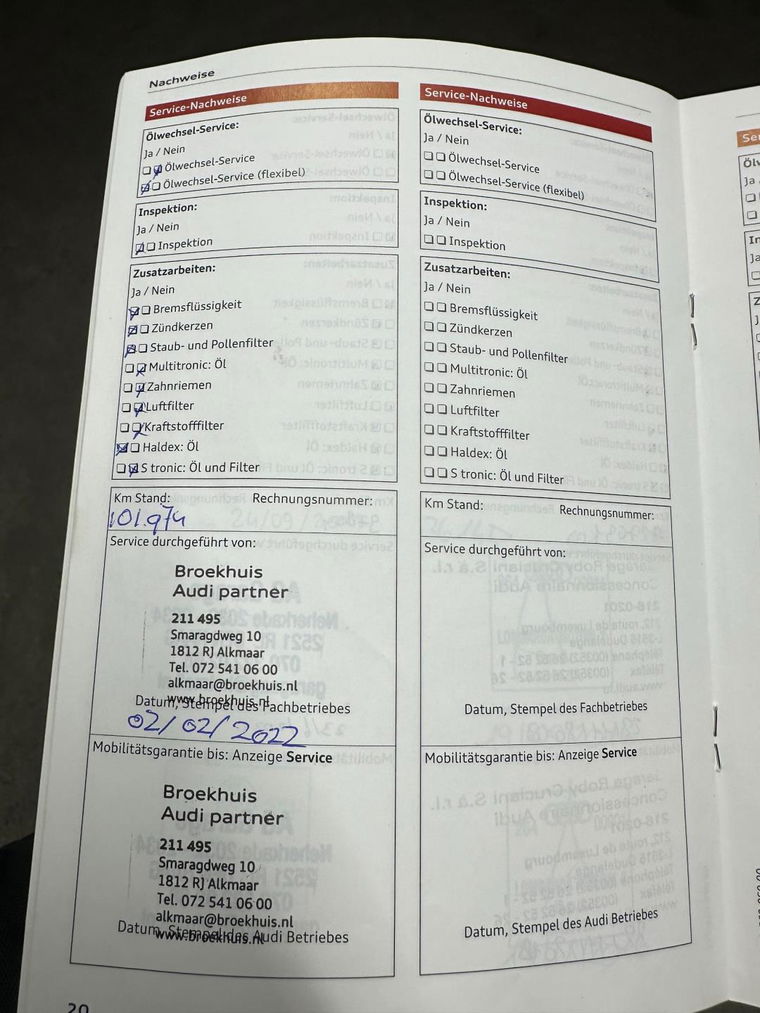 Nachweise
Service-Nachweise
Ölwechsel-Service:
Ja / Nein
Ölwechsel-Service
Ölwechsel-Service (flexibel)
Inspektion:
Ja / Nein
Inspektion
Zusatzarbeiten:
Ja / Nein
Bremsflüssigkeit
Zündkerzen
Staub- und Pollenfilter
Multitronic: Öl
Zahnriemen
Luftfilter
Kraftstofffilter
Haldex: Öl
S tronic: Öl und Filter
Km Stand: Rechnungsnummer:
101.974
Service durchgeführt von:
Broekhuis
Audi partner
211 495
Smaragdweg 10
1812 RJ Alkmaar
Tel. 072 541 06 00
alkmaar@broekhuis.nl
www.broekhuis.nl
Datum, Stempel des Fachbetriebes
02/02/2022
Mobilitätsgarantie bis: Anzeige Service
Broekhuis
Audi partner
211 495
Smaragdweg 10
1812 RJ Alkmaar
Tel. 072 541 06 00
alkmaar@broekhuis.nl
www.broekhuis.nl
Datum, Stempel des Audi Betriebes
20
Service-Nachweise
Ölwechsel-Service:
Ja / Nein
Ölwechsel-Service
Ölwechsel-Service (flexibel)
Inspektion:
Ja / Nein
Inspektion
Zusatzarbeiten:
Ja / Nein
Bremsflüssigkeit
Zündkerzen
Staub- und Pollenfilter
Multitronic: Öl
Zahnriemen
Luftfilter
Kraftstofffilter
Haldex: Öl
S tronic: Öl und Filter
Km Stand: Rechnungsnummer:
Service durchgeführt von:
Datum, Stempel des Fachbetriebes
Mobilitätsgarantie bis: Anzeige Service
Datum, Stempel des Audi Betriebes